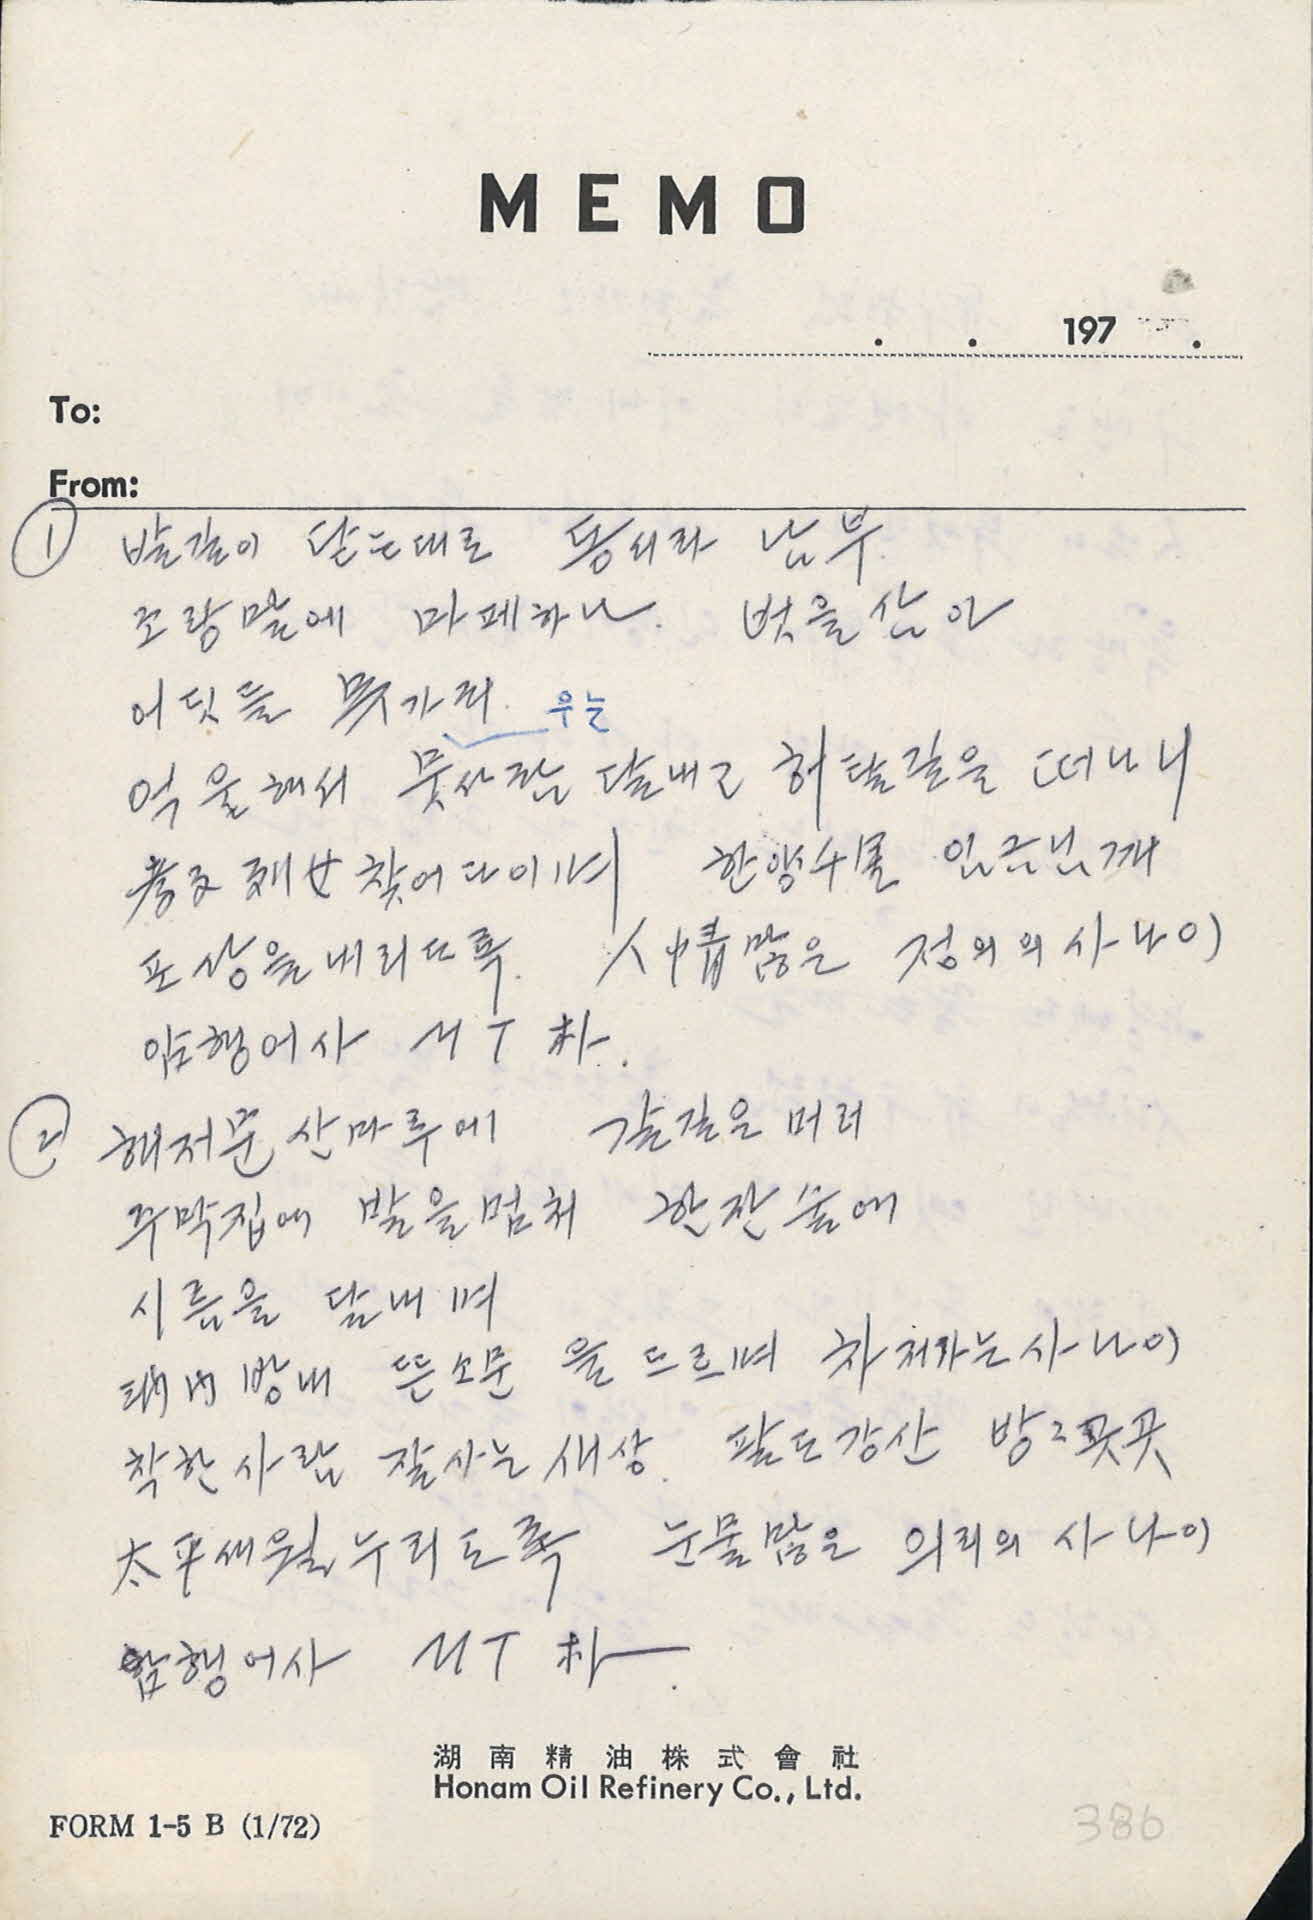 MEMO
. . 197 .
To:
From:
① 발길이 닫는대로 동서라 남부
조랑말에 마페하나. 벗을삼아
어딧들 못가리. 우는
억울해서 뭇사람 달내고 허탈길을 떠나니
孝子烈女 찾어다이며 한양 임금님께
포상을내리도록. 人情많은 정의의 사나이
암행어사 MT 朴.
② 해저문 산마루에 갈길은 머러
주막집에 발을멈처 한잔술에
시름을 달내며
坊内방내 뜬소문 을 드르며 차저가는사나이
착한사람 잘사는 새상. 팔도강산 방々곳곳
太平세월 누리도록 눈물많은 의리의 사나이
암행어사 MT 朴.
湖南精油株式會社
Honam Oil Refinery Co., Ltd.
FORM 1-5 B (1/72)
386